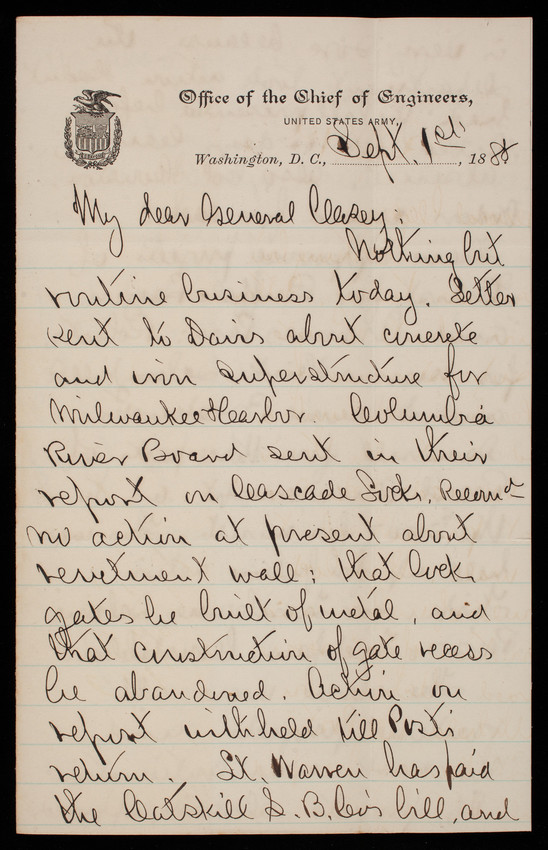 Office of the Chief of Engineers,
UNITED STATES ARMY,
Washington, D. C., Sept. 1st, 1888
My dear General Casey,
Nothing but
routine business today. Letter
sent to Davis about concrete
and iron superstructure for
Milwaukee Harbor. Columbia
River Board sent in their
report on Cascade Locks. Recomd
no action at present about
revetment wall; that lock
gates be built of metal, and
that construction of gate recess
be abandoned. Action on
report withheld till Post's
return. Lt. Warren has paid
the Catskill S. B. Co's bill, and